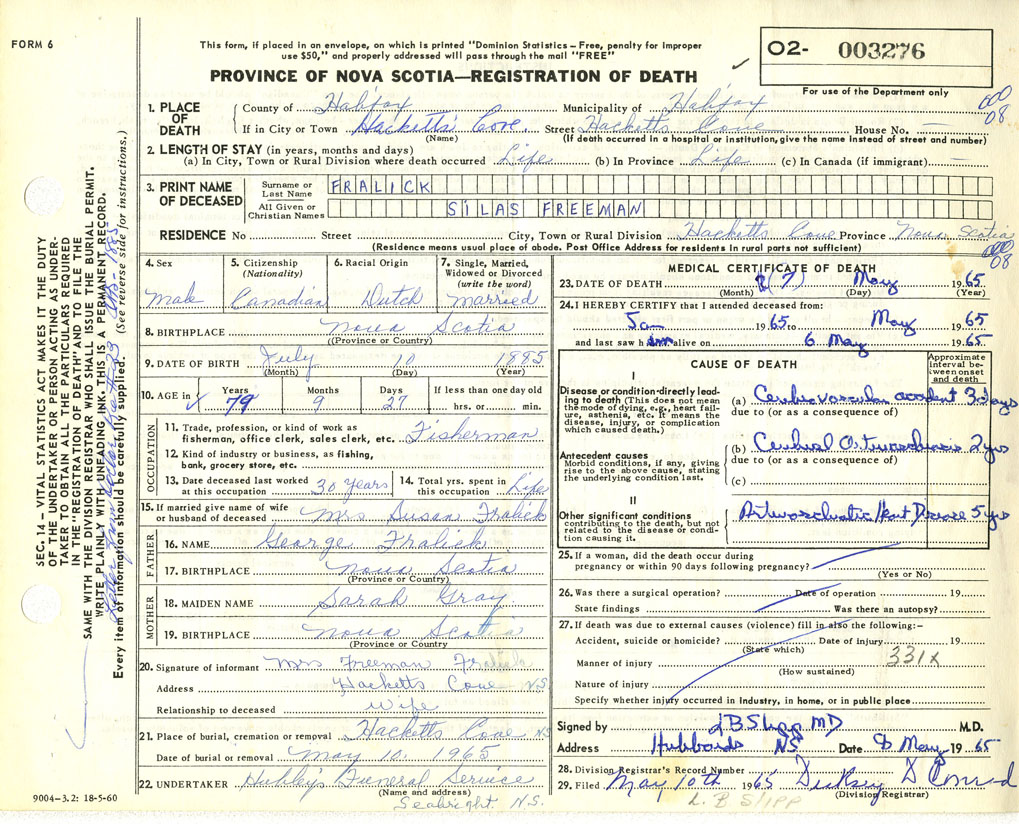 FORM 6
This form, if placed in an envelope, on which is printed "Dominion Statistics – Free, penalty for improper
use $50," and properly addressed will pass through the mail "FREE"
PROVINCE OF NOVA SCOTIA—REGISTRATION OF DEATH
O2- 003276
For use of the Department only
000
08
1. PLACE OF DEATH
County of Halifax Municipality of Halifax
If in City or Town Hacketts Cove. Street Hacketts Cove House No. —
(Name) (If death occurred in a hospital or institution, give the name instead of street and number)
2. LENGTH OF STAY (in years, months and days)
(a) In City, Town or Rural Division where death occurred Life (b) In Province Life (c) In Canada (if immigrant) —
3. PRINT NAME OF DECEASED
Surname or Last Name FRALICK
All Given or Christian Names SILAS FREEMAN
RESIDENCE No Street City, Town or Rural Division Hacketts Cove Province Nova Scotia
(Residence means usual place of abode. Post Office Address for residents in rural parts not sufficient)
000
08
4. Sex Male
5. Citizenship (Nationality) Canadian
6. Racial Origin Dutch
7. Single, Married, Widowed or Divorced (write the word) married
8. BIRTHPLACE Nova Scotia
(Province or Country)
9. DATE OF BIRTH July 10 1885
(Month) (Day) (Year)
10. AGE in Years Months Days If less than one day old
79 9 27 hrs. or min.
OCCUPATION
11. Trade, profession, or kind of work as
fisherman, office clerk, sales clerk, etc. Fisherman
12. Kind of industry or business, as fishing,
bank, grocery store, etc.
13. Date deceased last worked
at this occupation 30 Years
14. Total yrs. spent in
this occupation Life
15. If married give name of wife
or husband of deceased Mrs Susan Fralick
FATHER
16. NAME George Fralick
17. BIRTHPLACE Nova Scotia
(Province or Country)
MOTHER
18. MAIDEN NAME Sarah Gray
19. BIRTHPLACE Nova Scotia
(Province or Country
20. Signature of informant Mrs Freeman Fralick
Address Hacketts Cove N.S
Relationship to deceased Wife
21. Place of burial, cremation or removal Hacketts Cove NS
Date of burial or removal May 10. 1965
22. UNDERTAKER Hubley's Funeral Service
(Name and address)
Seabright N.S.
9004–3.2: 18-5-60
MEDICAL CERTIFICATE OF DEATH
23. DATE OF DEATH (7) May 1965
(Month) (Day) (Year)
24. I HEREBY CERTIFY that I attended deceased from:
Jan 1965 to May 1965
and last saw h alive on 6 May 1965
CAUSE OF DEATH
Approximate interval between onset and death
I
Disease or condition directly leading to death (This does not mean the mode of dying, e.g., heart failure, asthenia, etc. It means the disease, injury, or complication which caused death.)
(a) Cerebrovascular accident 3 days
due to (or as a consequence of)
Antecedent causes
Morbid conditions, if any, giving rise to the above cause, stating the underlying condition last.
(b) Cerebral Arteriosclerosis 2 yrs
due to (or as a consequence of)
(c)
II
Other significant conditions
contributing to the death, but not related to the disease or condition causing it.
Arteriosclerotic Heart Disease 5 yrs
25. If a woman, did the death occur during
pregnancy or within 90 days following pregnancy?
(Yes or No)
26. Was there a surgical operation? Date of operation 19
State findings Was there an autopsy?
27. If death was due to external causes (violence) fill in also the following:–
Accident, suicide or homicide? Date of injury 19
(State which)
Manner of injury 331X
(How sustained)
Nature of injury
Specify whether injury occurred in Industry, in home, or in public place
Signed by LB Slipp MD M.D.
Address Hubbards NS Date 8 May 1965
28. Division Registrar's Record Number
29. Filed May 10th 1965 D Conrad
(Division Registrar)
L. B SLIPP
SEC. 14—VITAL STATISTICS ACT MAKES IT THE DUTY
OF THE UNDERTAKER OR PERSON ACTING AS UNDERTAKER
TO OBTAIN ALL THE PARTICULARS REQUIRED
IN THE "REGISTRATION OF DEATH" AND TO FILE THE
SAME WITH THE DIVISION REGISTRAR WHO SHALL ISSUE THE BURIAL PERMIT.
WRITE PLAINLY WITH UNFADING INK. THIS IS A PERMANENT RECORD.
Every item of information should be carefully supplied. (See reverse side for instructions.)